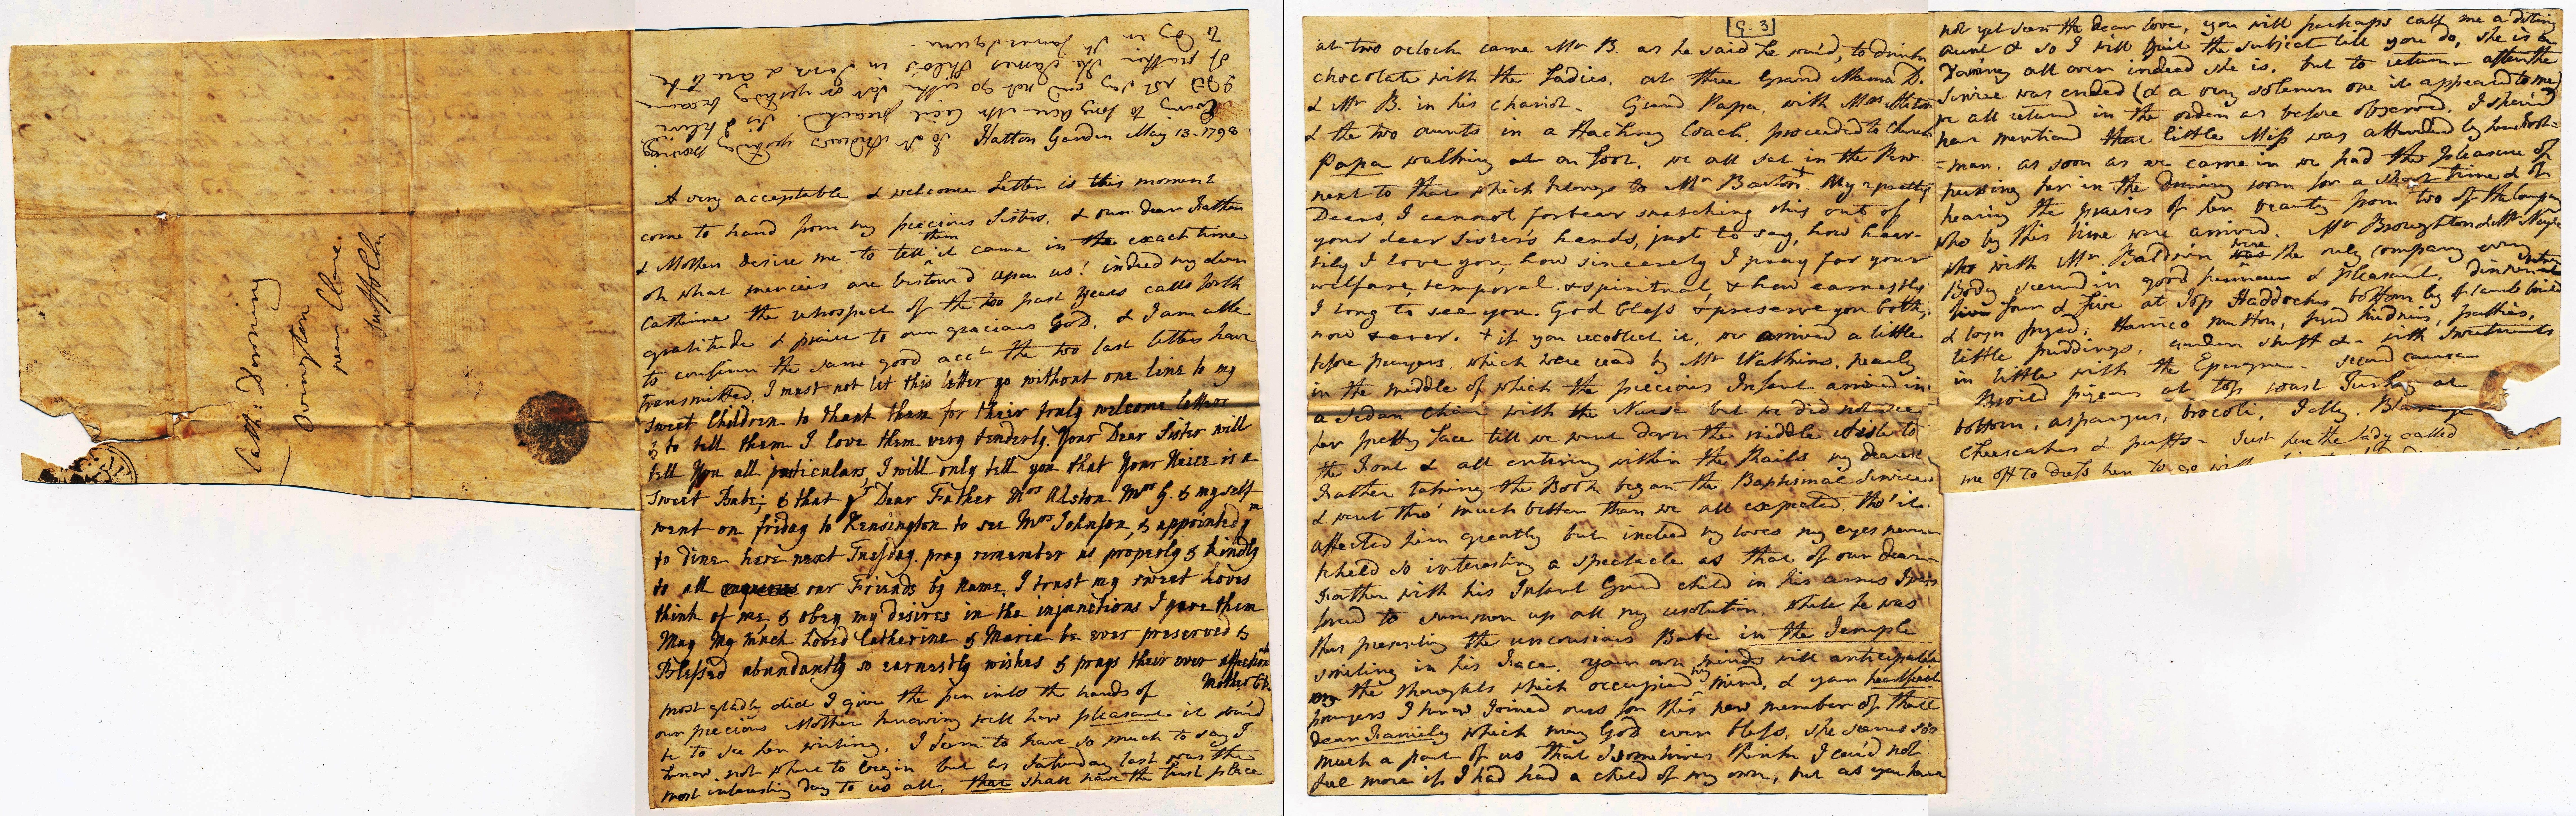 Cath: Downing
Ovington
near Clare
Suffolk
Hatton Garden May 13-1798
A very acceptable & welcome Letter is this moment
come to hand from my precious Sisters, & our dear Father
& Mother desire me to tell them it came in the exact time
oh what mercies are bestowed upon us! indeed my dear
Catherine the retrospect of the two past years calls forth
gratitude & praise to our gracious God, & I am able
to confirm the same good acct the two last letters have
transmitted, I must not let this letter go without one line to my
sweet Children to thank them for their truly welcome letters
& to tell them I love them very tenderly. Your Dear Sister will
tell You all particulars, I will only tell you that Your Neice is a
sweet Babe; & that yr Dear Father Mrs Alston Mrs G. & myself
went on friday to Kensington to see Mrs Johnson, & appointed ym
to dine here next Tuesday. pray remember us properly & kindly
to all our Friends by name, I trust my sweet Loves
think of me & obey my desires in the injunctions I gave them
May My much Loved Catherine & Maria be ever preserved &
Blessed abundantly so earnestly wishes & prays their ever affectionate
Mother
most gladly did I give the pen into the hands of
our precious Mother knowing well how pleasant it wou'd
be to see her writing, I seem to have so much to say I
know not where to begin but as Saturday last was the
most interesting day to us all, that shall have the first place
[G.3]
at two oclock came Mr B. as he said he wou'd, to drink
chocolate with the Ladies, at three Grand Mama D.
& Mr B. in his chariot - Grand Papa, with Mrs
& the two aunts in a Hackney Coach, proceeded to Church
Papa walking on foot. we all sat in the Pew
next to that which belongs to Mr Barton + My pretty
Dears, I cannot forbear snatching this out of
your dear Sister's hands, just to say, how hear-
tily I love you, how sincerely I pray for your
welfare, temporal & spiritual & how earnestly
I long to see you. God bless & preserve you both,
now & ever. + if you recollect it, we arrived a little
before prayers, which were read by Mr Watkins, nearly
in the middle of which the precious Infant arrived in
a Sedan Chair with the Nurse but we did not see
her pretty Face till we went down the middle Aisle to
the Font & all entering within the Rails my dearest
Father taking the Book began the Baptismal Service
& went thro' much better than we all expected, tho' it
affected him greatly but indeed my loves my eyes never
beheld so interesting a spectacle as that of our dear
Father with his Infant Grand child in his arms I was
forced to summon up all my resolution, while he was
thus presenting the unconscious Babe in the Temple
smiling in his Face, your own minds will anticipate
the thoughts which occupied my mind, & your heartfelt
prayers I know joined ours for this new member of that
dear Family which may God ever bless, she seems so
much a part of us that I sometimes think I cou'd not
feel more if I had had a child of my own, but as you have
not yet seen the dear love, you will perhaps call me a doting
aunt & so I will quit the subject till you do, she is a
Downing all over indeed she is, but to return - after the
service was ended (& a very solemn one it appeared to me)
we all returned in the order as before observed, I shou'd
have mention'd that little Miss was attended by her Foot-
-man. as soon as we came in we had the pleasure of
kissing her in the drawing room for a short time & of
hearing the praises of her beauty from two of the company
who by this time were arrived. Mr Broughton & Mr
who with Mr Baldwin were the only company every
Body seem'd in good humour & pleasant, dinner
four & five at Top Haddocks, bottom leg of Lamb boild
& loyn fryed; Harrico mutton, fryed kidnies, patties,
little puddings, garden stuff &- with sweetmeats
in little with the Epergne - second course
Broild pigeons at top roast Turkey at
bottom, asparagus, brocoli, Jelly, Blamange
Cheesecakes & puffs - Just here the Lady called
me off to dress her to go